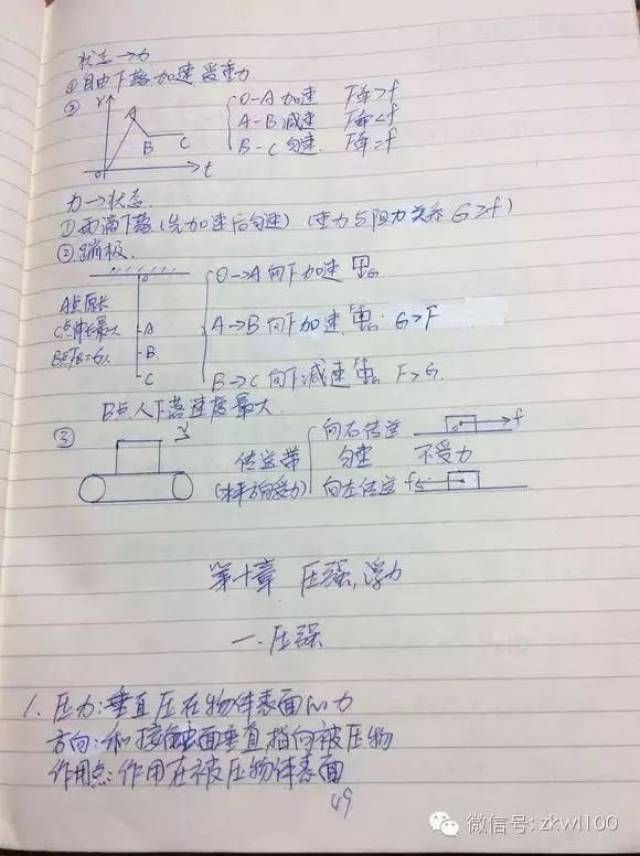 状态→力
①自由下落 加速 受重力
② v
O-A 加速 F牵>f
A A-B 减速 F牵<f
B C B-C 匀速 F牵=f
o t
力→状态
①雨滴下落(先加速后匀速)(重力与阻力关系 G>f)
②蹦极
O→A 向下加速 G
A点原长
C点伸长最大 A A→B 向下加速 G>F
B B
C B→C 向下减速 F>G
B点人下落速度最大
③ 向右传送 f
传送带 匀速 不受力
(水平方向受力) 向左传送 f
第十章 压强,浮力
一.压强
1.压力:垂直压在物体表面的力
方向:和接触面垂直,指向被压物
作用点:作用在被压物体表面
49
微信号: zkwl100